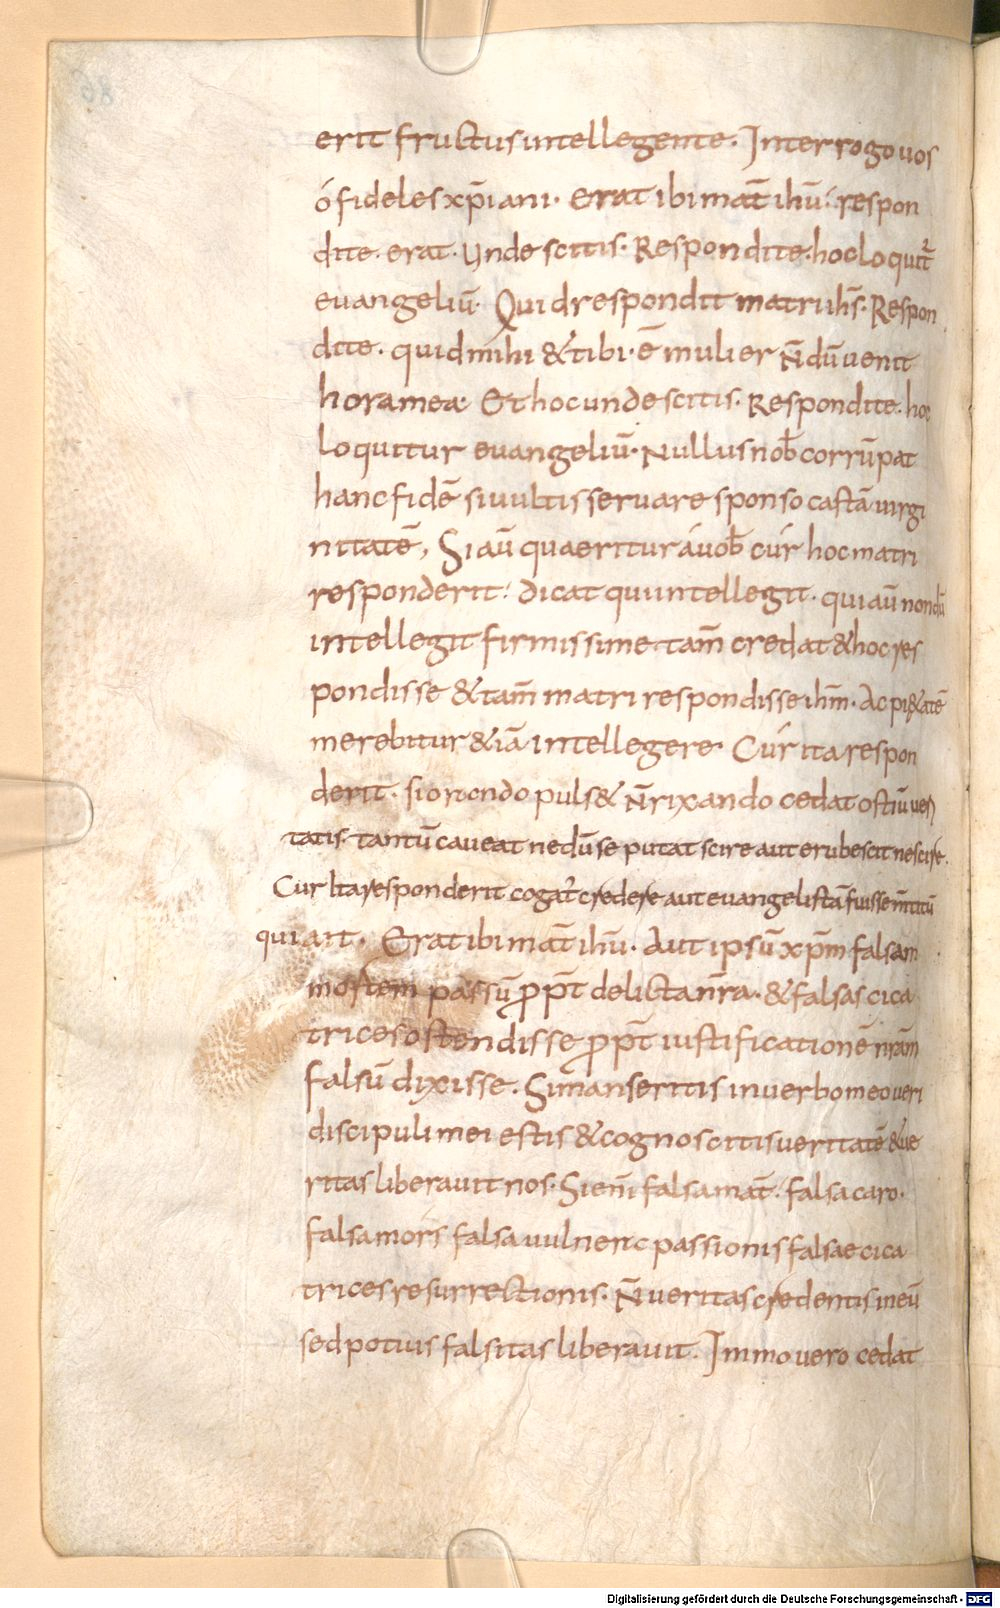 erit fructus intellegente. Interrogo uos
ó fideles xp̄iani. erat ibi mat̄ ihū. respon
dite. erat. Unde scitis. Respondite. hoc loquit᷑
euangeliū. Quid respondit matri ihs̄. Respon
dite. quid mihi & tibi. ē mulier n̄dū uenit
hora mea. Et hoc unde scitis. Respondite. hoc
loquitur euangeliū. Nullus nob̄ corrūpat
hanc fidē si uultis seruare sponso castā uirgi
nitatē, Si aū quaeritur á uob̄ cúr hoc matri
responderit. dicat qui intellegit. qui aū nondū
intellegit firmissime tam̄ credat & hoc res
pondisse & tam̄ matri respondisse ihm̄. Ac pi&atē
merebitur & iā intellegere. Cúr ita respon
derit. si orando puls& n̄ rixando cedat ostiū ueri
tatis. tantū caueat ne dū se putat scire aut erubescit nescire.
Cur ita responderit cogat᷑ credere aut euangelistā fuisse m̄titū
qui ait. Erat ibi mat̄ ihū. Aut ipsū xp̄m falsam
mortem passū ꝓpt̄ delicta nr̄a. & falsas cica
trices ostendisse ꝓpt̄ iustificationē nr̄am
falsū dixisse. Si manseritis in uerbo meo ueri
discipuli mei estis & cognoscitis ueritatē & ue
ritas liberauit nos. Si enī falsa mat̄. falsa caro.
falsa mors falsa uulnera passionis falsae cica
trices resurrectionis. N̄ ueritas credentis in eū
sed potius falsitas liberauit. Immo uero cedat
Digitalisierung gefördert durch die Deutsche Forschungsgemeinschaft - DFG